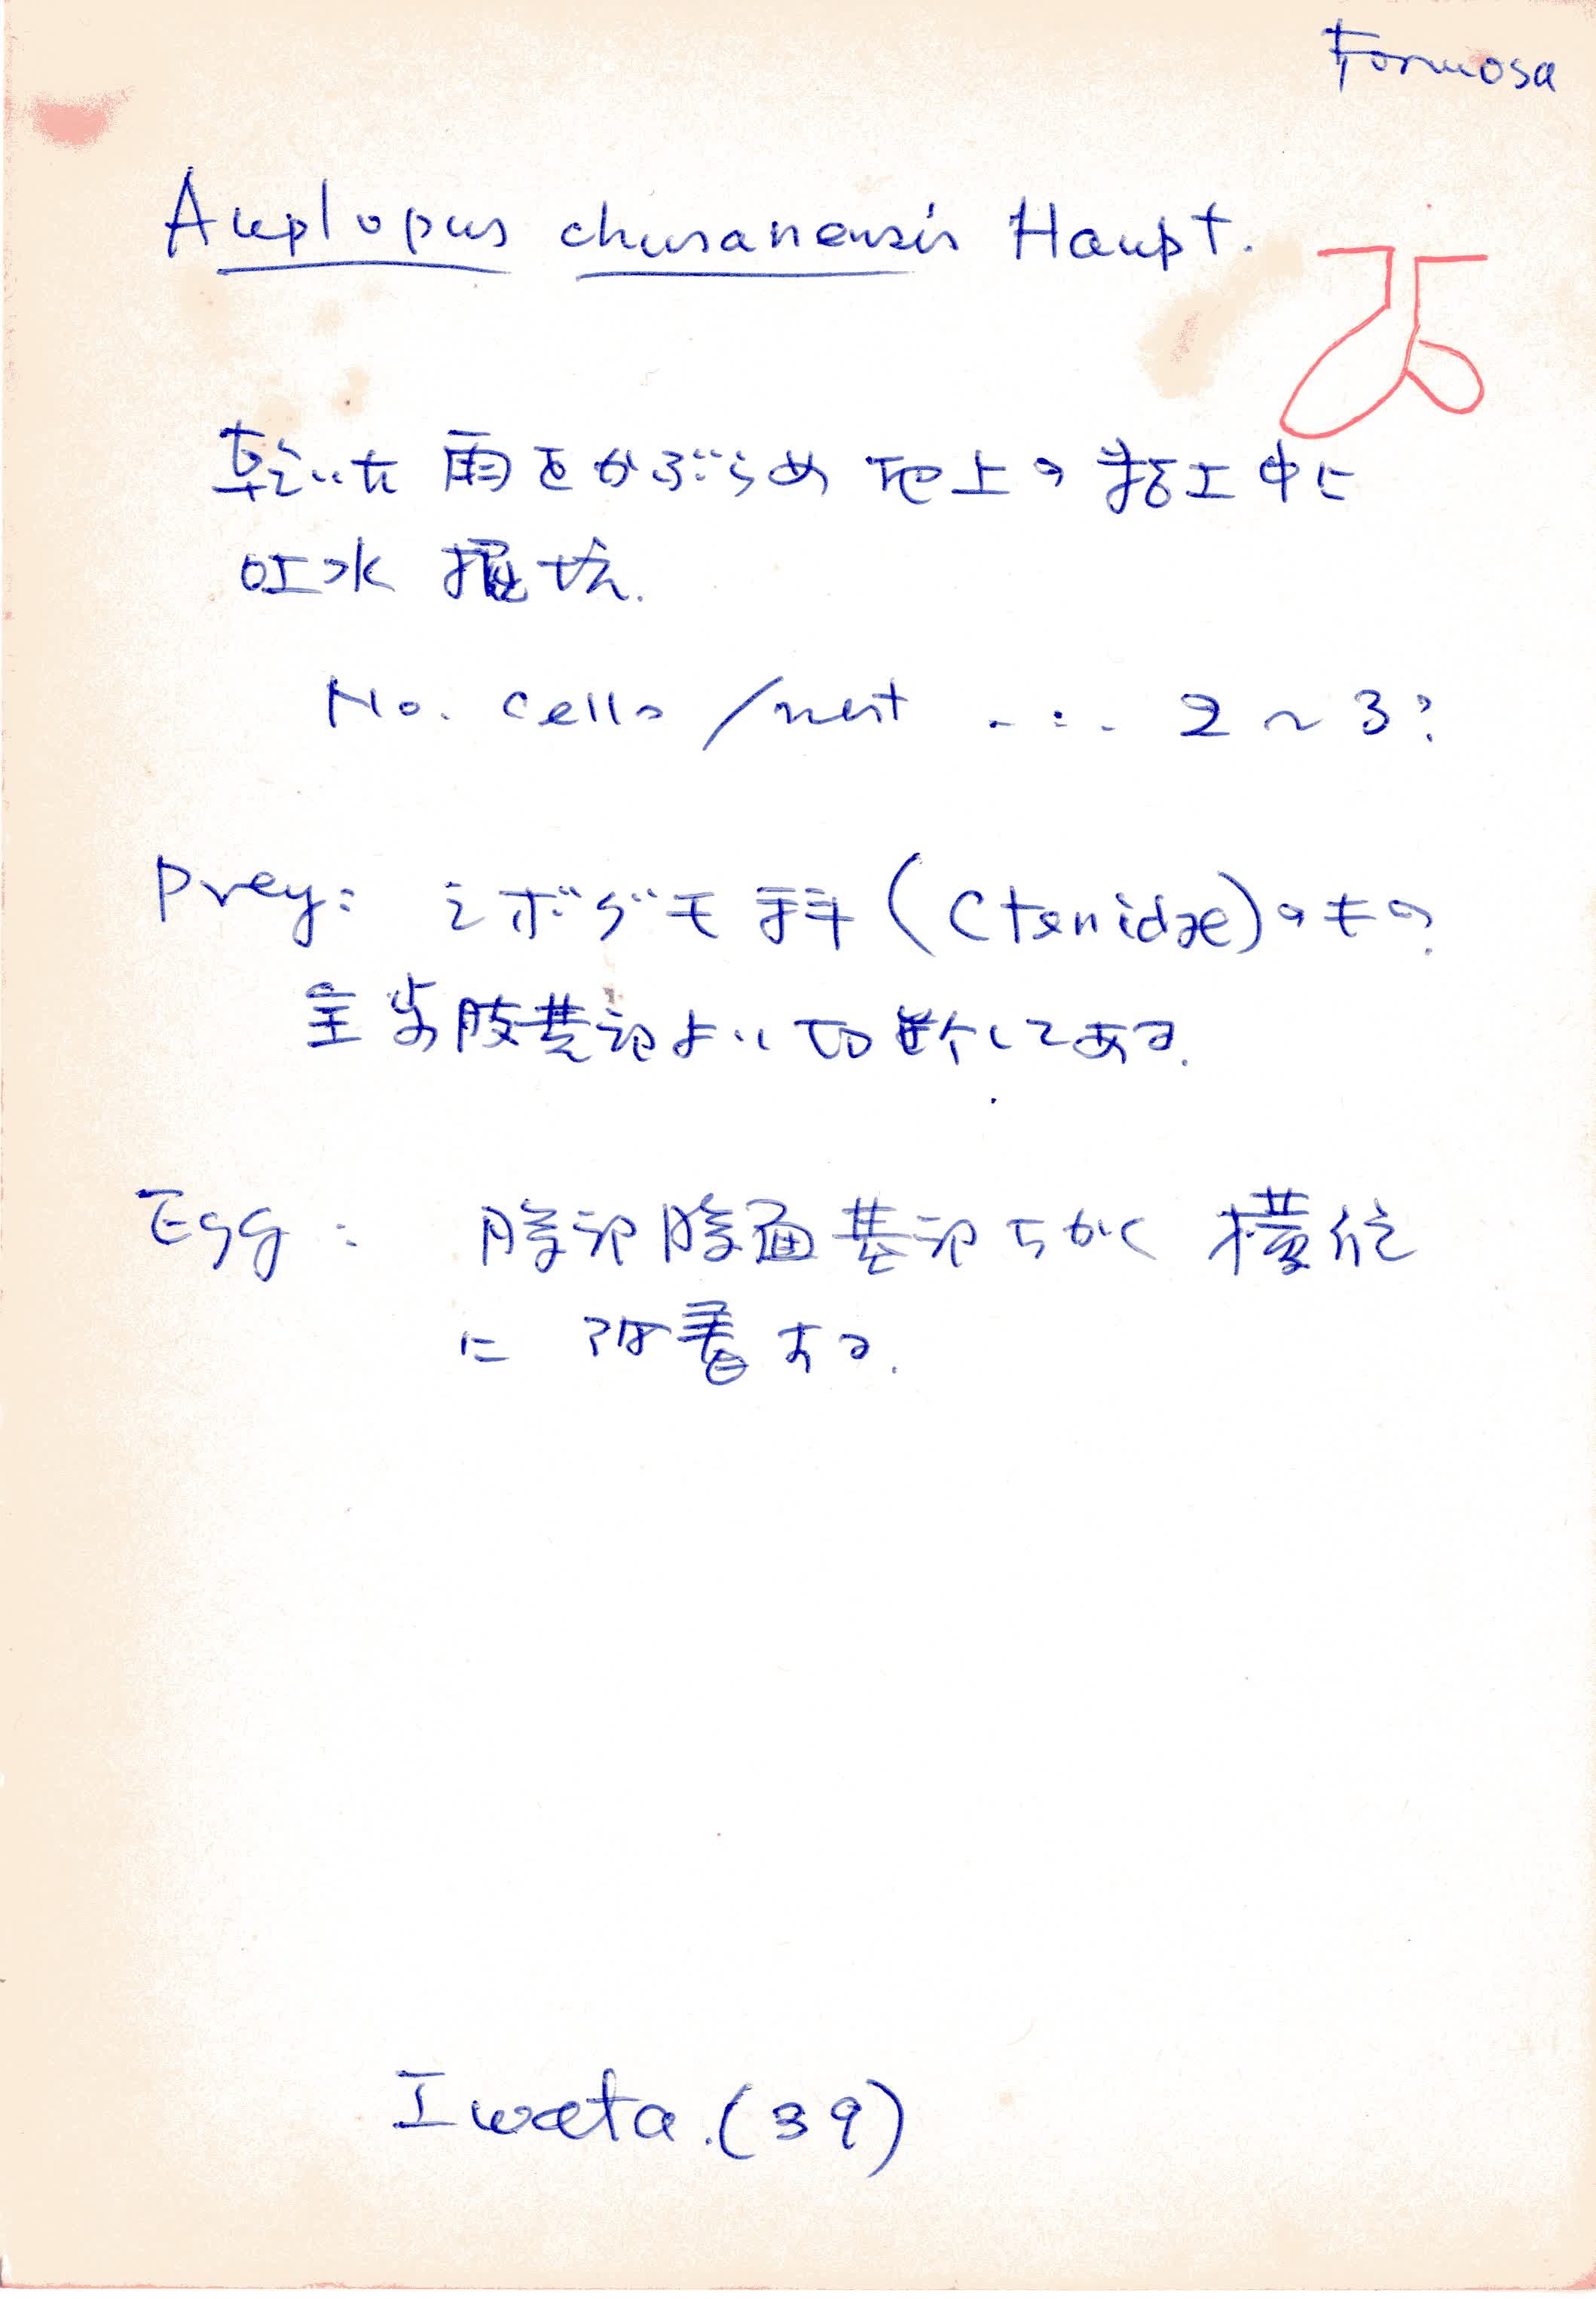 Formosa
Auplopus chusanensis Haupt.
乾いた雨をかぶらぬ地上の粘土中に
吐水掘坑.
No. cells /nest ..... 2~3?
Prey: シボグモ科(Ctenidae)のもの.
全歩肢基部より切断してある.
Egg: 腹部腹面基部ちかく横位
に附着する.
Iwata.(39)